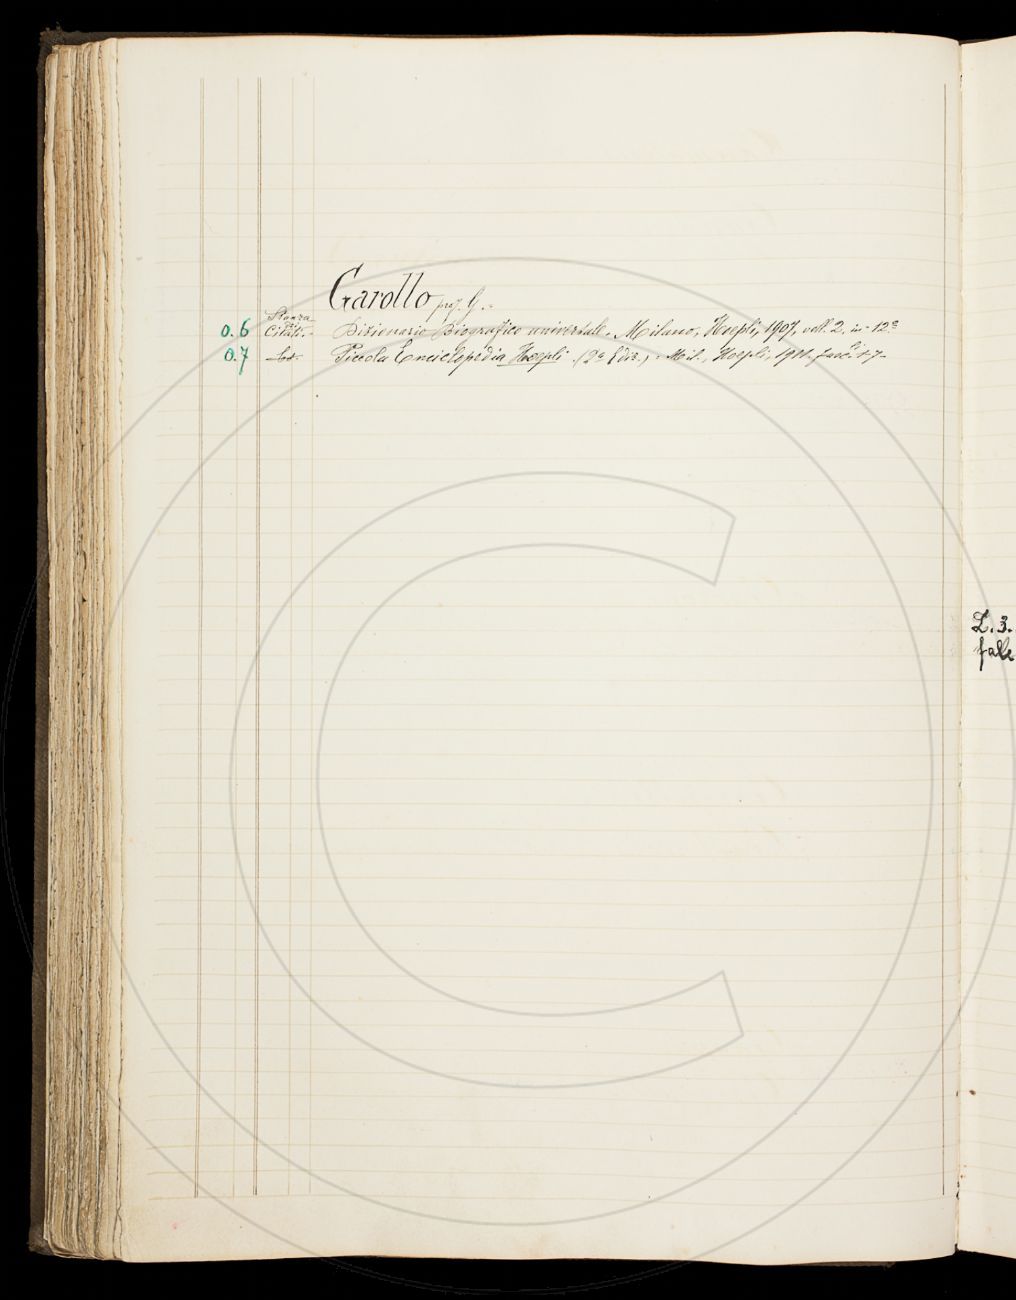 Garollo prof. G. -
Stanza
O. 6 Citato. - Dizionario Biografico universale. Milano, Hoepli, 1907. voll. 2. in 12º
O. 7 Piccola Enciclopedia Hoepli - (2ª Ediz.) - Mil., Hoepli, fasc.
L. 3.
C